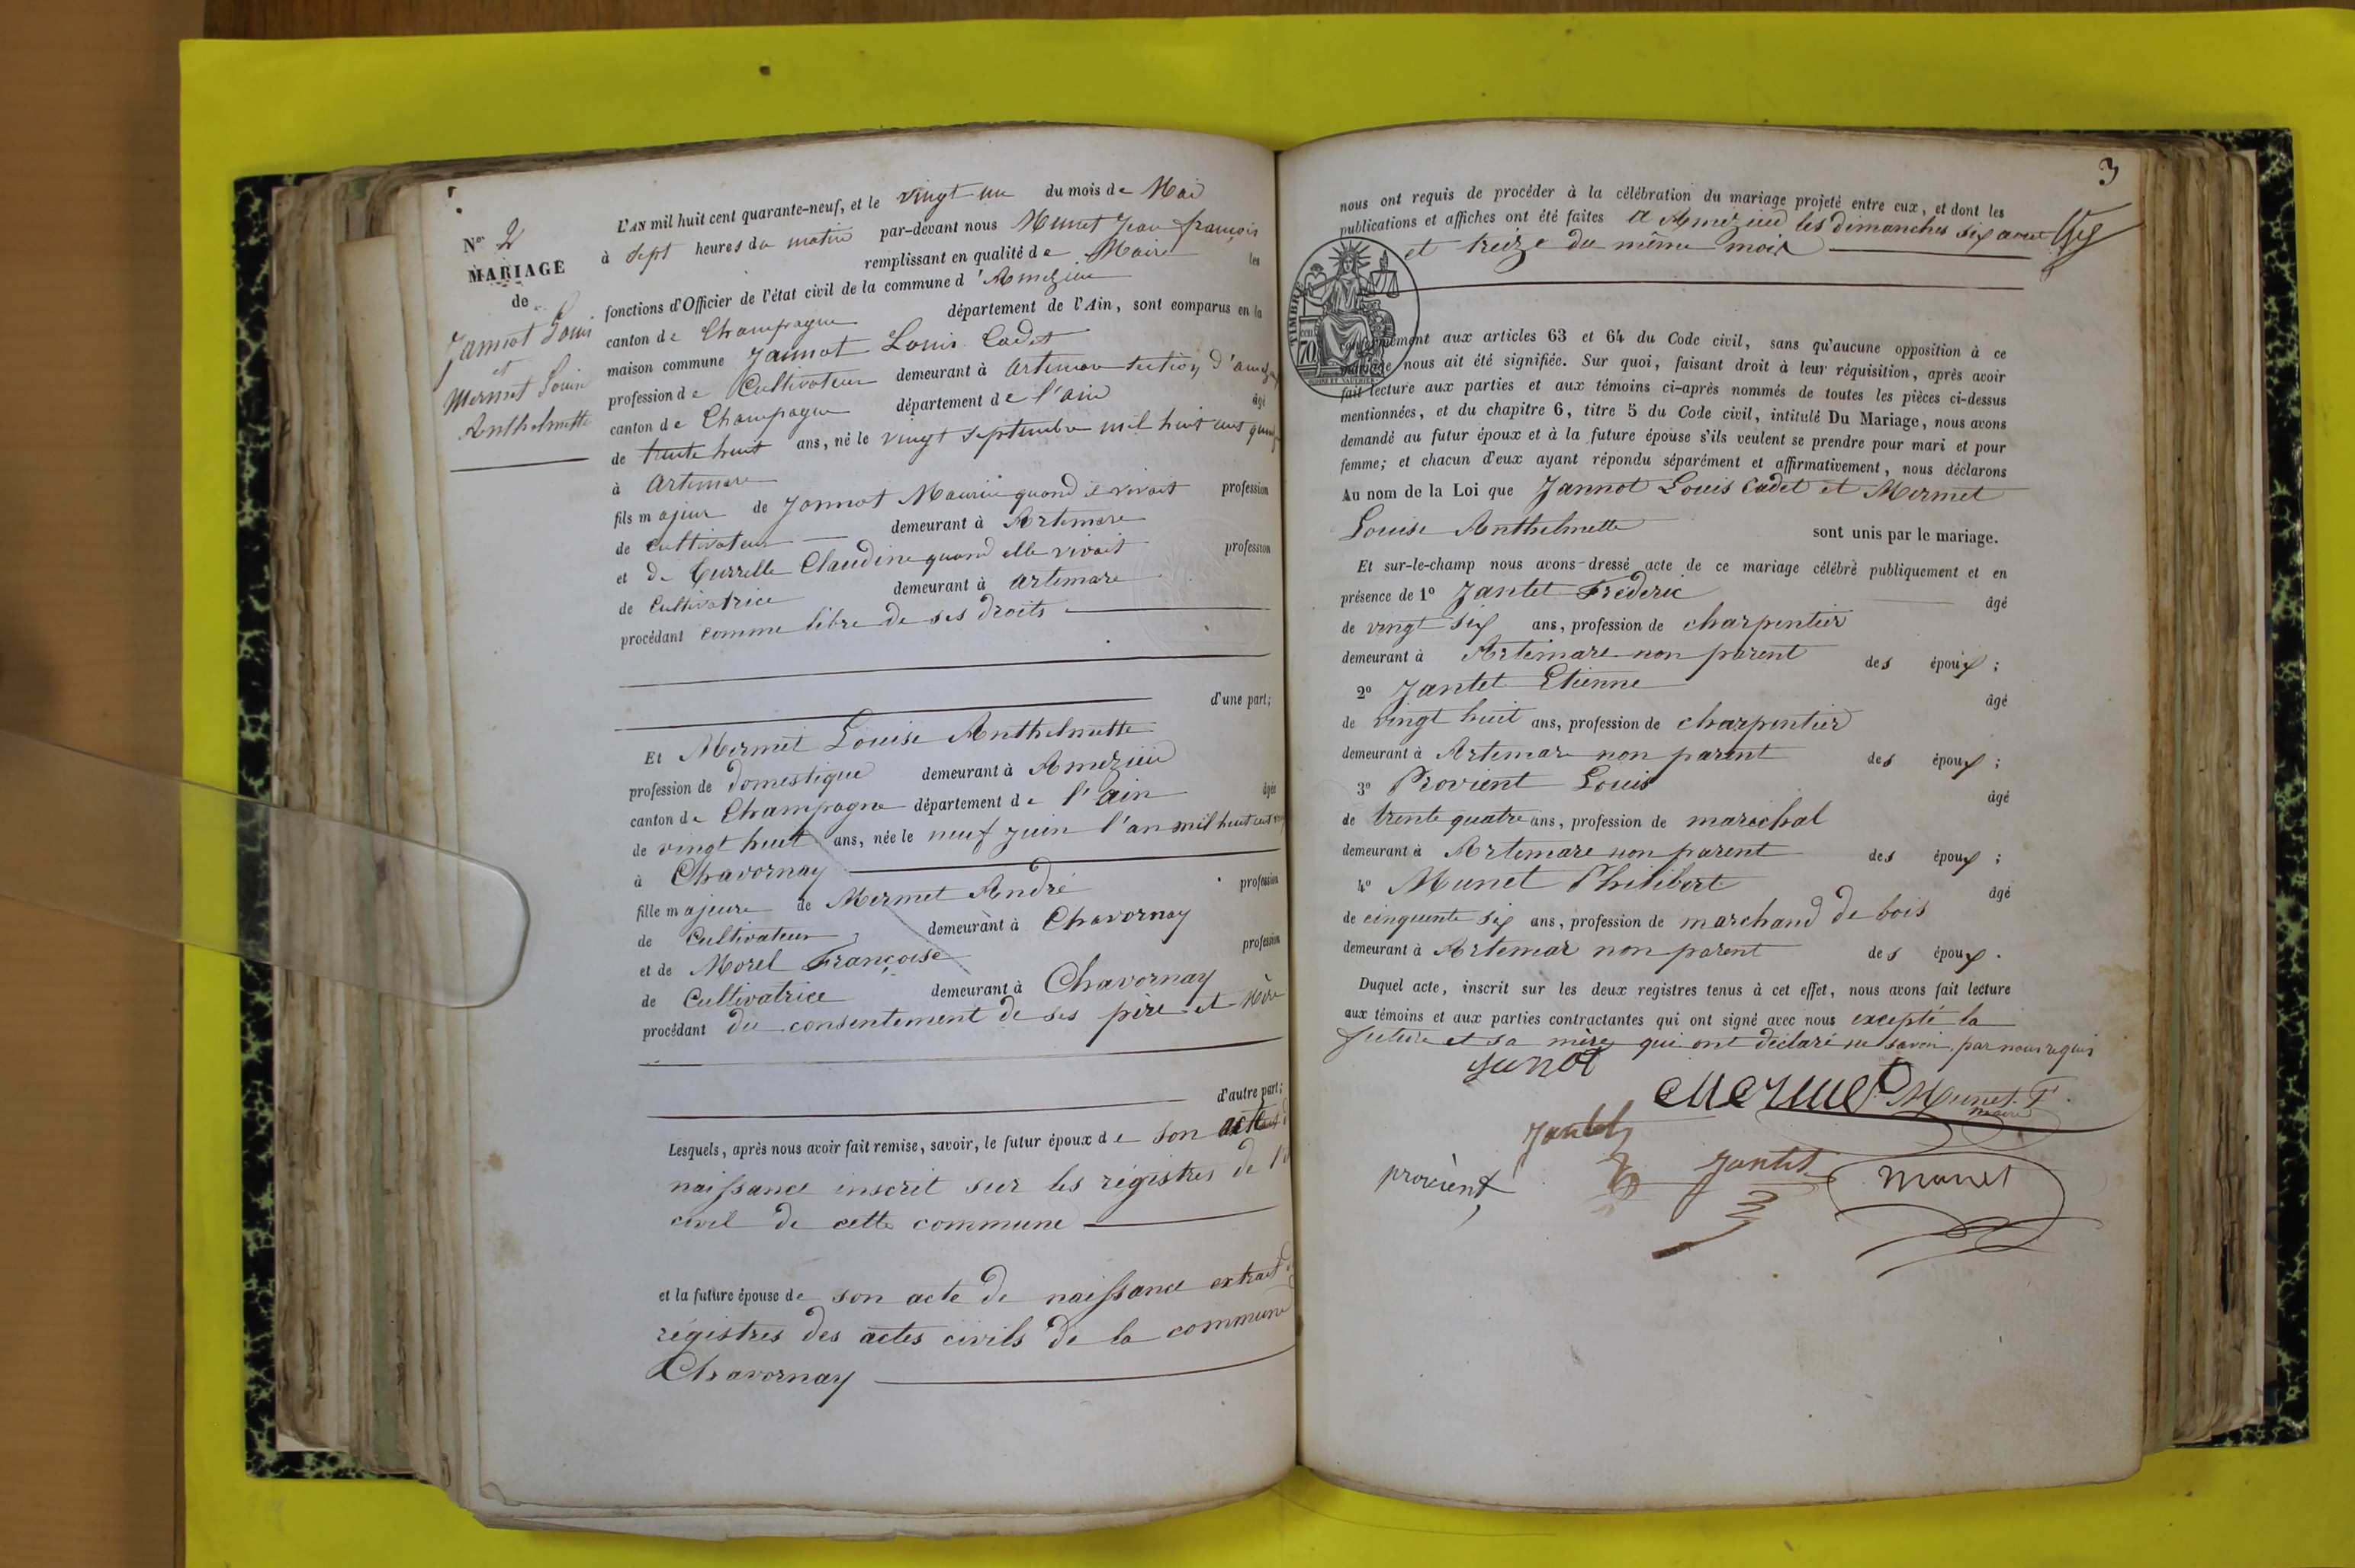 N° 2
MARIAGE
de
Jannot Louis
et
Mermet Louise
Anthelmette
L'AN mil huit cent quarante-neuf, et le vingt un du mois de Mai
à sept heures du matin par-devant nous Munet Jean françois
remplissant en qualité de Maire les
fonctions d'Officier de l'état civil de la commune d'Amezieu
canton de Champagne département de l'Ain, sont comparus en la
maison commune Jannot Louis Cadet
profession de Cultivateur demeurant à Artemare section d'
canton de Champagne département de l'ain âgé
de trente huit ans, né le vingt septembre mil huit cent
à Artemare
fils majeur de Jannot Maurice quand il vivait profession
de cultivateur demeurant à Artemare
et de Turrelle Claudine quand elle vivait profession
de Cultivatrice demeurant à artemare
procédant comme libre de ses droits
d'une part;
Et Mermet Louise Anthelmette
profession de domestique demeurant à Amezieu
canton de Champagne département de l'ain âgée
de vingt huit ans, née le neuf juin l'an mil huit cent
à Chavornay
fille majeure de Mermet André profession
de Cultivateur demeurant à Chavornay
et de Morel Françoise profession
de Cultivatrice demeurant à Chavornay
procédant du consentement de ses père et Mère
d'autre part;
Lesquels, après nous avoir fait remise, savoir, le futur époux de son acte
naissance inscrit sur les régistres de
civil de cette commune
et la future épouse de son acte de naissance extrait
régistres des actes civils de la commune
Chavornay
3
nous ont requis de procéder à la célébration du mariage projeté entre eux, et dont les
publications et affiches ont été faites à Amezieu les dimanches six avril
et treize du même mois
TIMBRE
70
conformément aux articles 63 et 64 du Code civil, sans qu'aucune opposition à ce
mariage nous ait été signifiée. Sur quoi, faisant droit à leur réquisition, après avoir
fait lecture aux parties et aux témoins ci-après nommés de toutes les pièces ci-dessus
mentionnées, et du chapitre 6, titre 5 du Code civil, intitulé Du Mariage, nous avons
demandé au futur époux et à la future épouse s'ils veulent se prendre pour mari et pour
femme; et chacun d'eux ayant répondu séparément et affirmativement, nous déclarons
Au nom de la Loi que Jannot Louis Cadet et Mermet
Louise Anthelmette sont unis par le mariage.
Et sur-le-champ nous avons dressé acte de ce mariage célébré publiquement et en
présence de 1° Jantet Fréderic âgé
de vingt six ans, profession de charpentier
demeurant à Artemare non parent des époux;
2° Jantet Etienne âgé
de vingt huit ans, profession de charpentier
demeurant à Artemare non parent des époux;
3° Provient Louis âgé
de trente quatre ans, profession de maréchal
demeurant à Artemare non parent des époux;
4° Munet Philibert âgé
de cinquente six ans, profession de marchand de bois
demeurant à Artemar non parent des époux.
Duquel acte, inscrit sur les deux registres tenus à cet effet, nous avons fait lecture
aux témoins et aux parties contractantes qui ont signé avec nous excepté la
future et sa mère qui ont déclaré ne savoir, par nous requis
Mermet Munet. F.
maire
Jantet
provient Jantet Munet